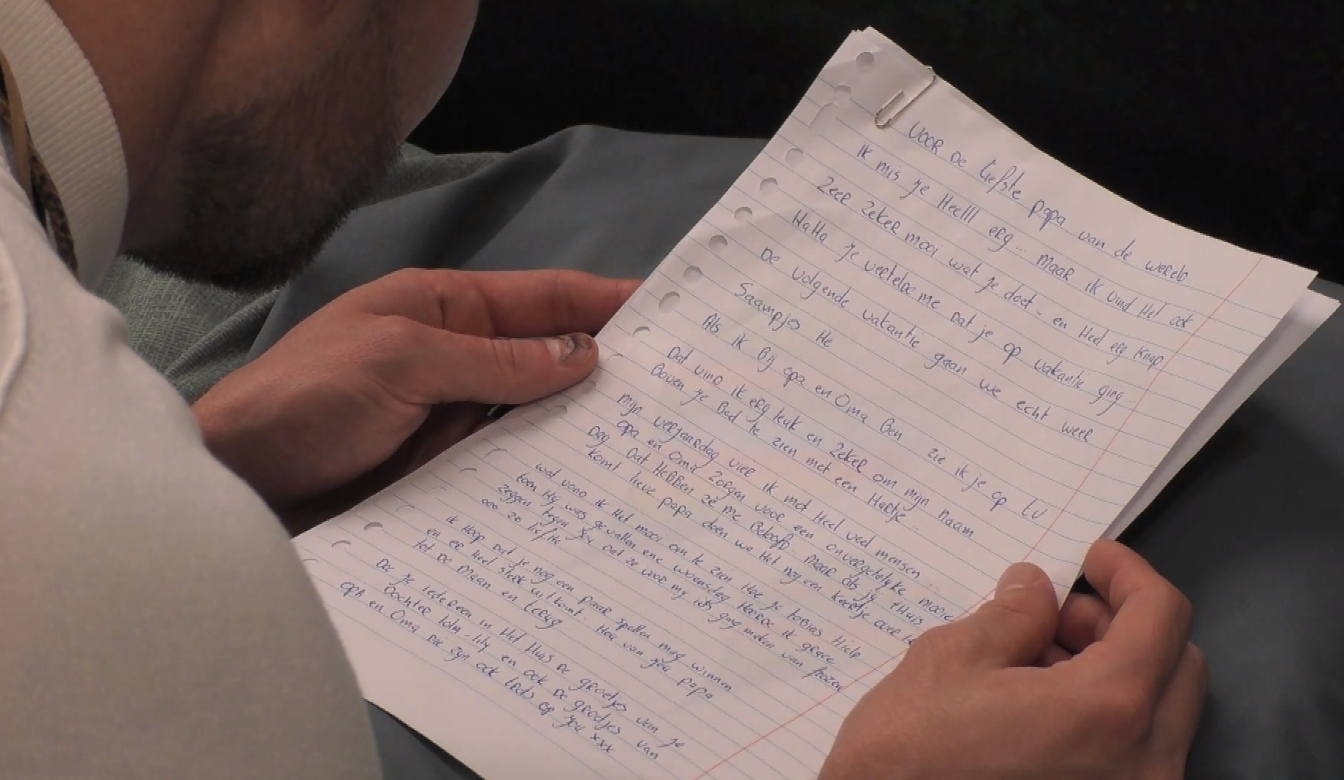 VOOR DE liefste papa van de wereld
IK mis je Heelll erg... maar ik vind Het ook
Zeer Zeker mooi wat je doet - en Heel erg Knap
HaHa je vertelde me dat je op vakantie ging
De volgende vakantie gaan we echt weer
Saampjes He
Als ik Bij opa en Oma Ben zie ik je op tv
Dat vind ik erg leuk en Zeker om mijn naam
Boven je Bed te zien met een Hartje
mijn verjaardag vier ik met Heel veel mensen...
opa en Oma Zorgen voor een onvergetelijke mooie
Dag Dat HeBBen ze me Beloofd. maar als jij tHuis
komt lieve papa doen we Het nog een keertje over
wat vond ik Het mooi om te zien Hoe je toBias Hielp
toen Hij was gevallen en woensdag Hoorde ik
zeggen tegen dat ze voor mij iets ging maken van frozen
ooo zo lief He
ik Hoop dat je nog een paar spellen mag winnen
en er Heel sterk uit komt. Hou van jou papa
tot De maan en terug
Doe je iedereen in Het Huis De groetjes van je
Dochter en ook De groetjes van
opA en Oma Die zijn ook trots op jou xxx